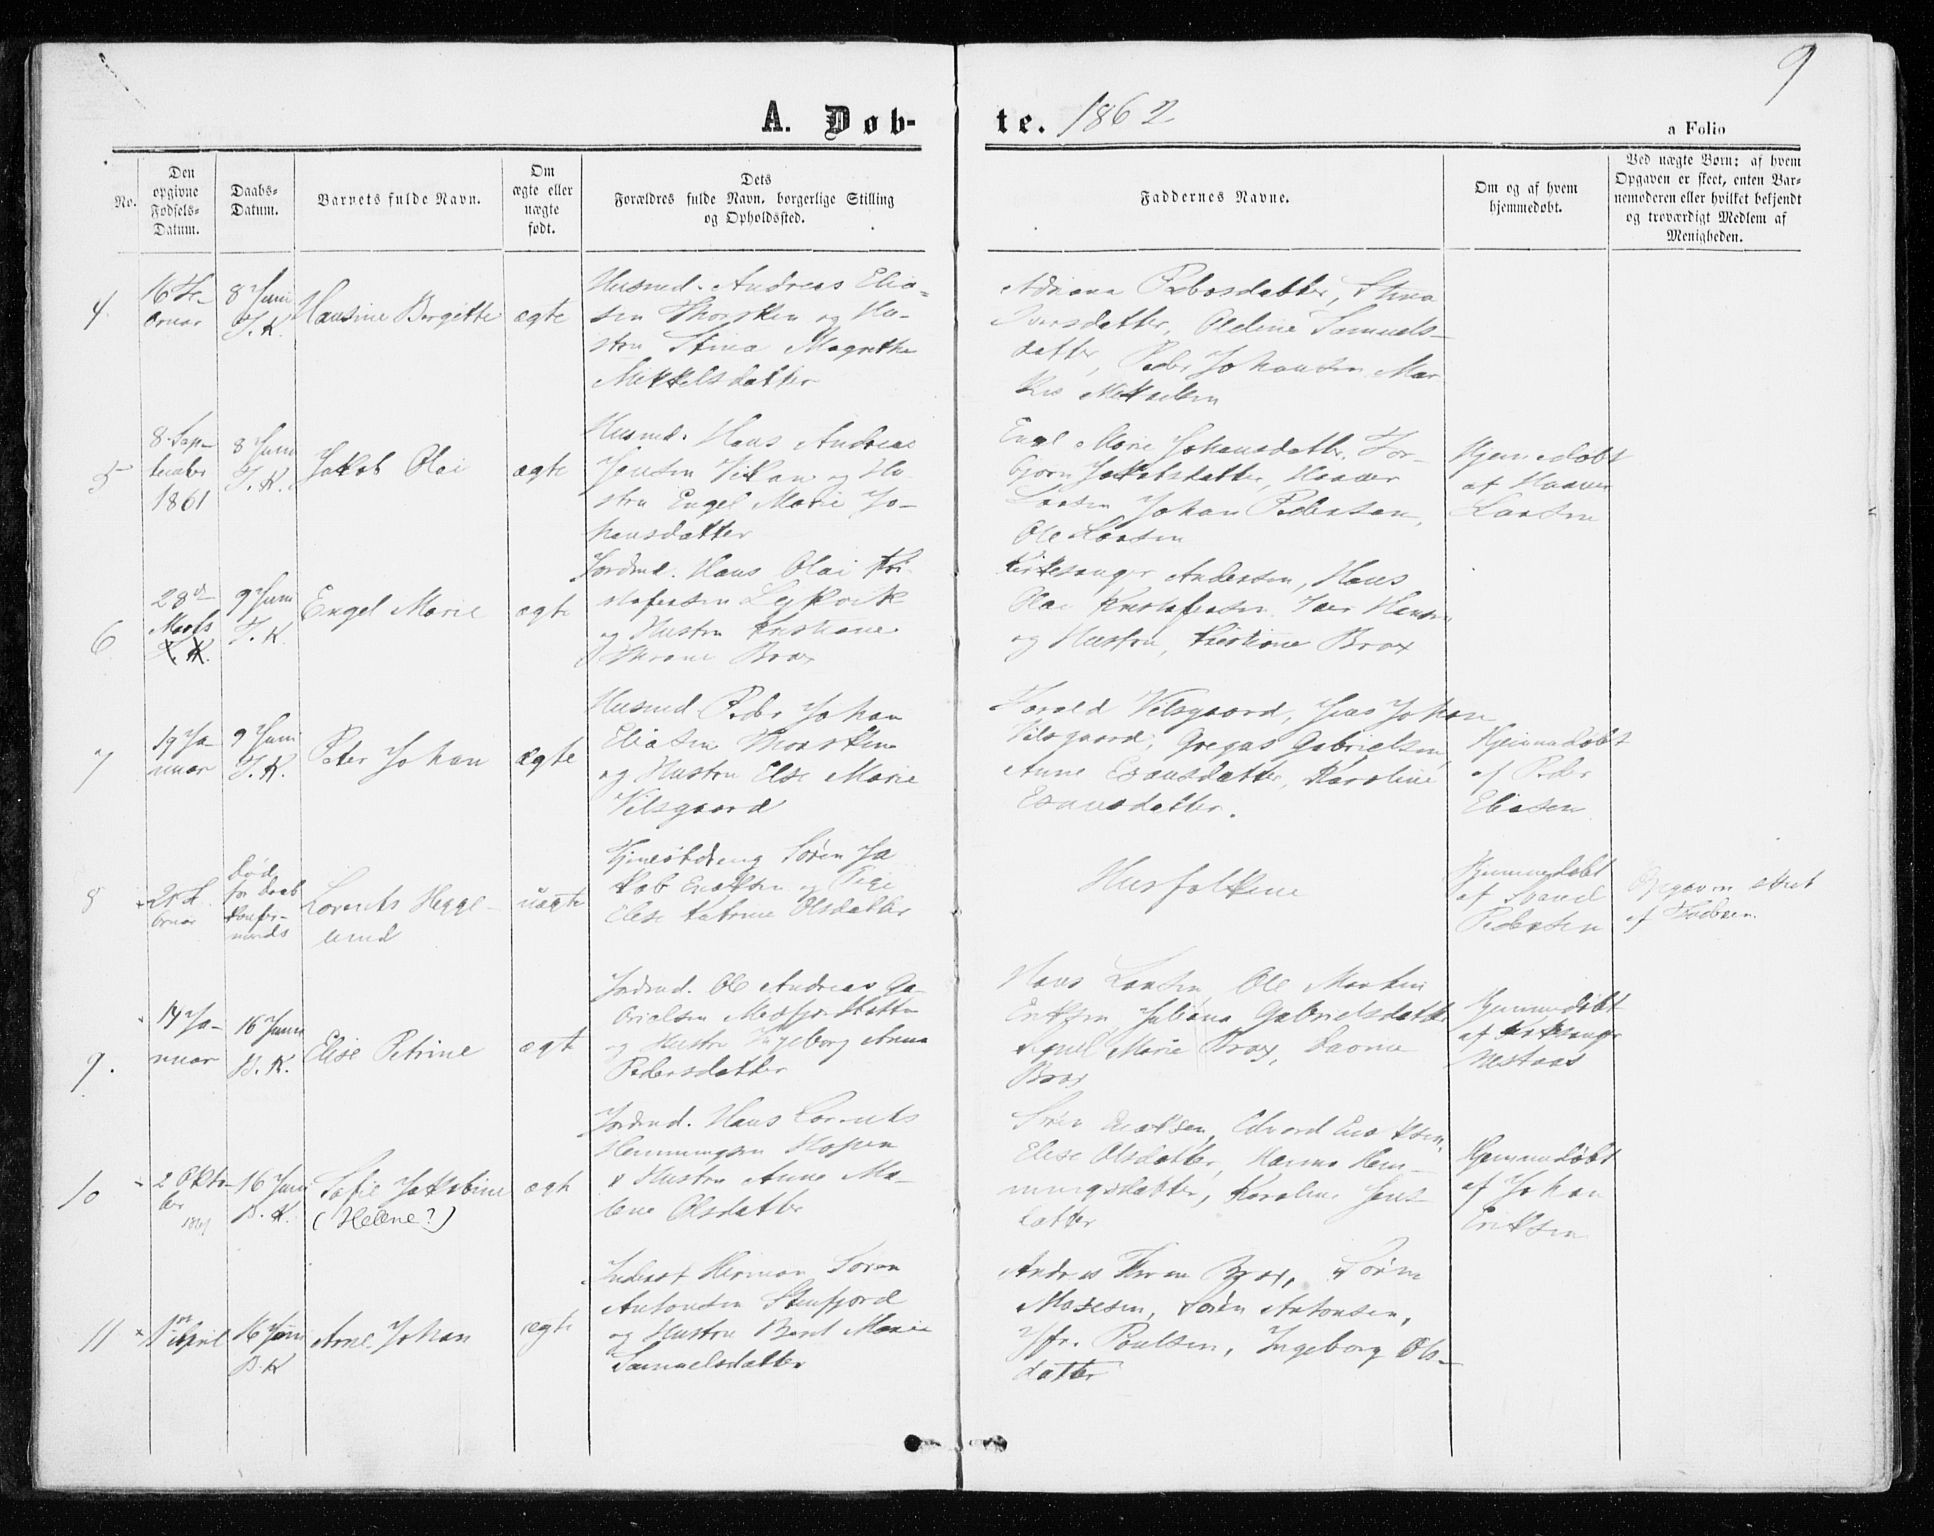 9
A. Døb-
te. 1862
a Folio
No.
Den
opgivne
Fødsels-
Datum.
Daabs-
Datum.
Barnets fulde Navn.
Om
ægte eller
uægte
født.
Dets
Forældres fulde Navn, borgerlige Stilling
og Opholdssted.
Faddernes Navne.
Om og af hvem
hjemmedøbt.
Ved uægte Børn: af hvem
Opgaven er skeet, enten Bar-
nemoderen eller hvilket bekjendt
og troværdigt Medlem af
Menigheden.
4
16 Fe-
bruar
8 Juni
T. K.
Hansine Bergitte
ægte
Husmd. Andreas Elia-
sen Thorsken og Hu-
stru Stina Magrethe
Mikkelsdatter
Adriana Pedersdatter, Stina
Iversdatter, Oldine Samuels-
datter, Peder Johansen Mar
kus Mikkelsen
5
8 Sep-
tember
1861
8 Juni
T. K.
Jakob Olai
ægte
Husmd. Hans Andreas
Jensen Vikan og Hu
stru Engel Marie Jo-
hansdatter
Engel Marie Johansdatter, Tor-
bjørn Jakobsdatter, Haaver
Larsen Johan Pedersen,
Ole Larsen
Hjemmedøbt
af Haaver
Larsen
6
28de
Marts
T. K.
9 Juni
T. K.
Engel Marie
ægte
Jordmd. Hans Olai Kri-
stofersen Lekvik
og Hustru Kristiane
Thrane Brox
Kirkesanger Andersen, Hans
Olai Kristofersen, Iver Hansen
og Hustru, Kristiane Brox
7
19 Ja-
nuar
9 Juni
T. K.
Peter Johan
ægte
Husmd Peder Johan
Eliasen Thorsken
og Hustru Else Marie
Vilsgaard
Harald Vilsgaard, Jens Johan
Vilsgaard, Gregus Gabrielsen,
Anne Esausdatter, Karoline
Esausdatter.
Hjemmedøbt
af Peder
Eliasen
8
Død
før Daab
konfir-
merede
bruar
Lorents Hegge-
lund
uægte
Søren Ja
kob Enoksen og Pige
Elise Katrine Olsdatter
Husfolkene
Hjemmedøbt
af Svend
Pedersen
Opgaven skeet
af
9.
14 Ja-
nuar
16 Juni
B. K.
Elise Petrine
ægte
Jordmd. Ole Andreas Ga-
brielsen Medfjordbotten
og Hustru Ingeborg Anna
Pedersdatter
Hans Larsen, Ole Martin
Eriksen Juliana Gabrielsdatter
Marie Brox,
Brox
Hjemmedøbt
af Kirkesanger
Nestaas
10
2 Okto-
ber
1861
16 Juni
B. K.
Sofie Jakobine
(Helene?)
ægte
Jordmd. Hans Lorents
Hemmingsen Hopen
& Hustru Anne Ma-
lene Olsdatter
Søren Enoksen, Edvard Enoksen,
Elise Olsdatter, Hanna Hem-
mingsdatter, Karoline Jens
datter
Hjemmedøbt
af Johan
Eriksen
11
1ste April
16 Juni
B. K
Arne Johan
ægte
Inderst Herman Søren
Antonsen Stenfjord
og Hustru Berit Marie
Samuelsdatter
Andreas Thrane Brox, Søren
Mosesen, Søren Antonsen,
Jfr. Poulsen, Ingeborg Ols-
datter